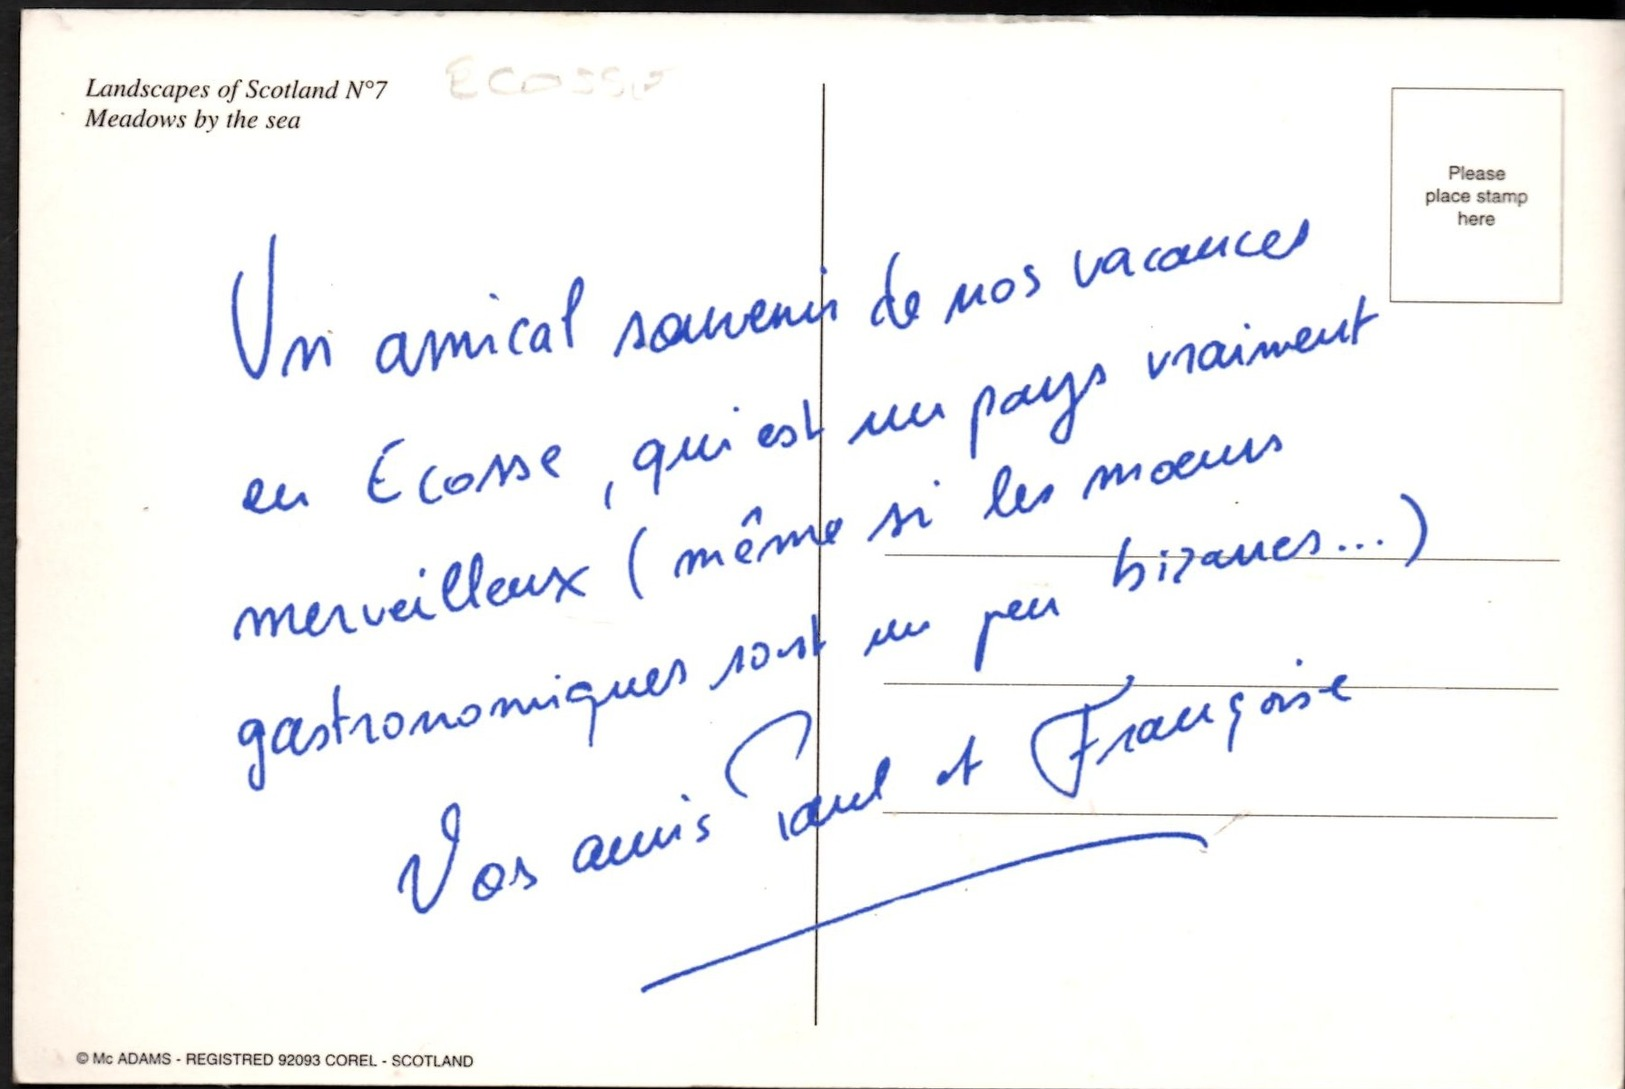 Landscapes of Scotland N°7
Meadows by the sea
ECOSSE
Please
place stamp
here
Un amical souvenir de nos vacances
en Ecosse, qui est un pays vraiment
merveilleux (même si les moeurs
gastronomiques sont un peu bizarres...)
Vos amis Paul et Françoise
© Mc ADAMS - REGISTRED 92093 COREL - SCOTLAND